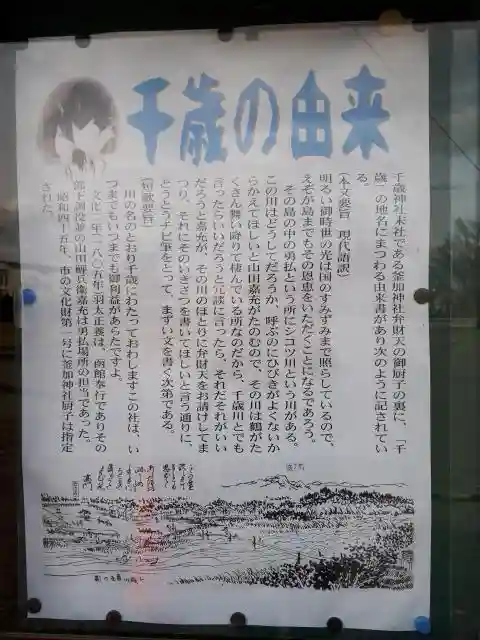 千歳の由来
千歳神社末社である釜加神社弁財天の御厨子の裏に、「千
歳」の地名にまつわる由来書があり次のように記されてい
る。
(本文要旨　現代語訳)
明るい御時世の光は国のすみずみまで照らしているので、
えぞが島までもその恩恵をいただくことになるであろう。
その島の中の勇払という所にシコツ川という川がある。
この川はどうしてだろうか、呼ぶのにひびきがよくないか
らかえてほしいと山田嘉充がたのむので、その川は鶴がた
くさん舞い降りて棲んでいる所なのだから、千歳川とでも
言ったらいいだろうと冗談に言ったら、それだそれがいい
だろうと嘉充が、その川のほとりに弁財天をお請けしてま
つり、それにそのいきさつを書いてほしいと言う通りに、
とうとうチビ筆をとって、まずい文を書く次第である。
(短歌要旨)
川の名のとおり千歳にわたっておわしますこの社は、い
つまでもいつまでも御利益があらたですよ。
文化二年(一八〇五年)羽太正養は、函館奉行でありその
部下調役並の山田鯉兵衛嘉充は勇払場所の担当であった。
昭和四十五年、市の文化財第一号に釜加神社厨子は指定
された。